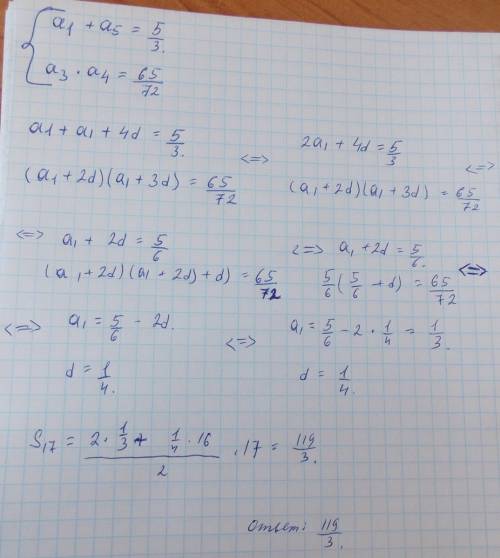 a1 + a5 = 5/3.
a3 · a4 = 65/72
a1 + a1 + 4d = 5/3.
(a1 + 2d)(a1 + 3d) = 65/72
<=>
2a1 + 4d = 5/3
(a1 + 2d)(a1 + 3d) = 65/72
<=>
<=> a1 + 2d = 5/6
(a1 + 2d)(a1 + 2d) + d) = 65/72
<=> a1 + 2d = 5/6.
5/6 (5/6 + d) = 65/72
<=>
<=> a1 = 5/6 - 2d.
d = 1/4.
<=> a1 = 5/6 - 2 · 1/4 = 1/3.
d = 1/4.
S17 = (2 · 1/3 + 1/4 · 16)/2 · 17 = 119/3.
ответ: 119/3.